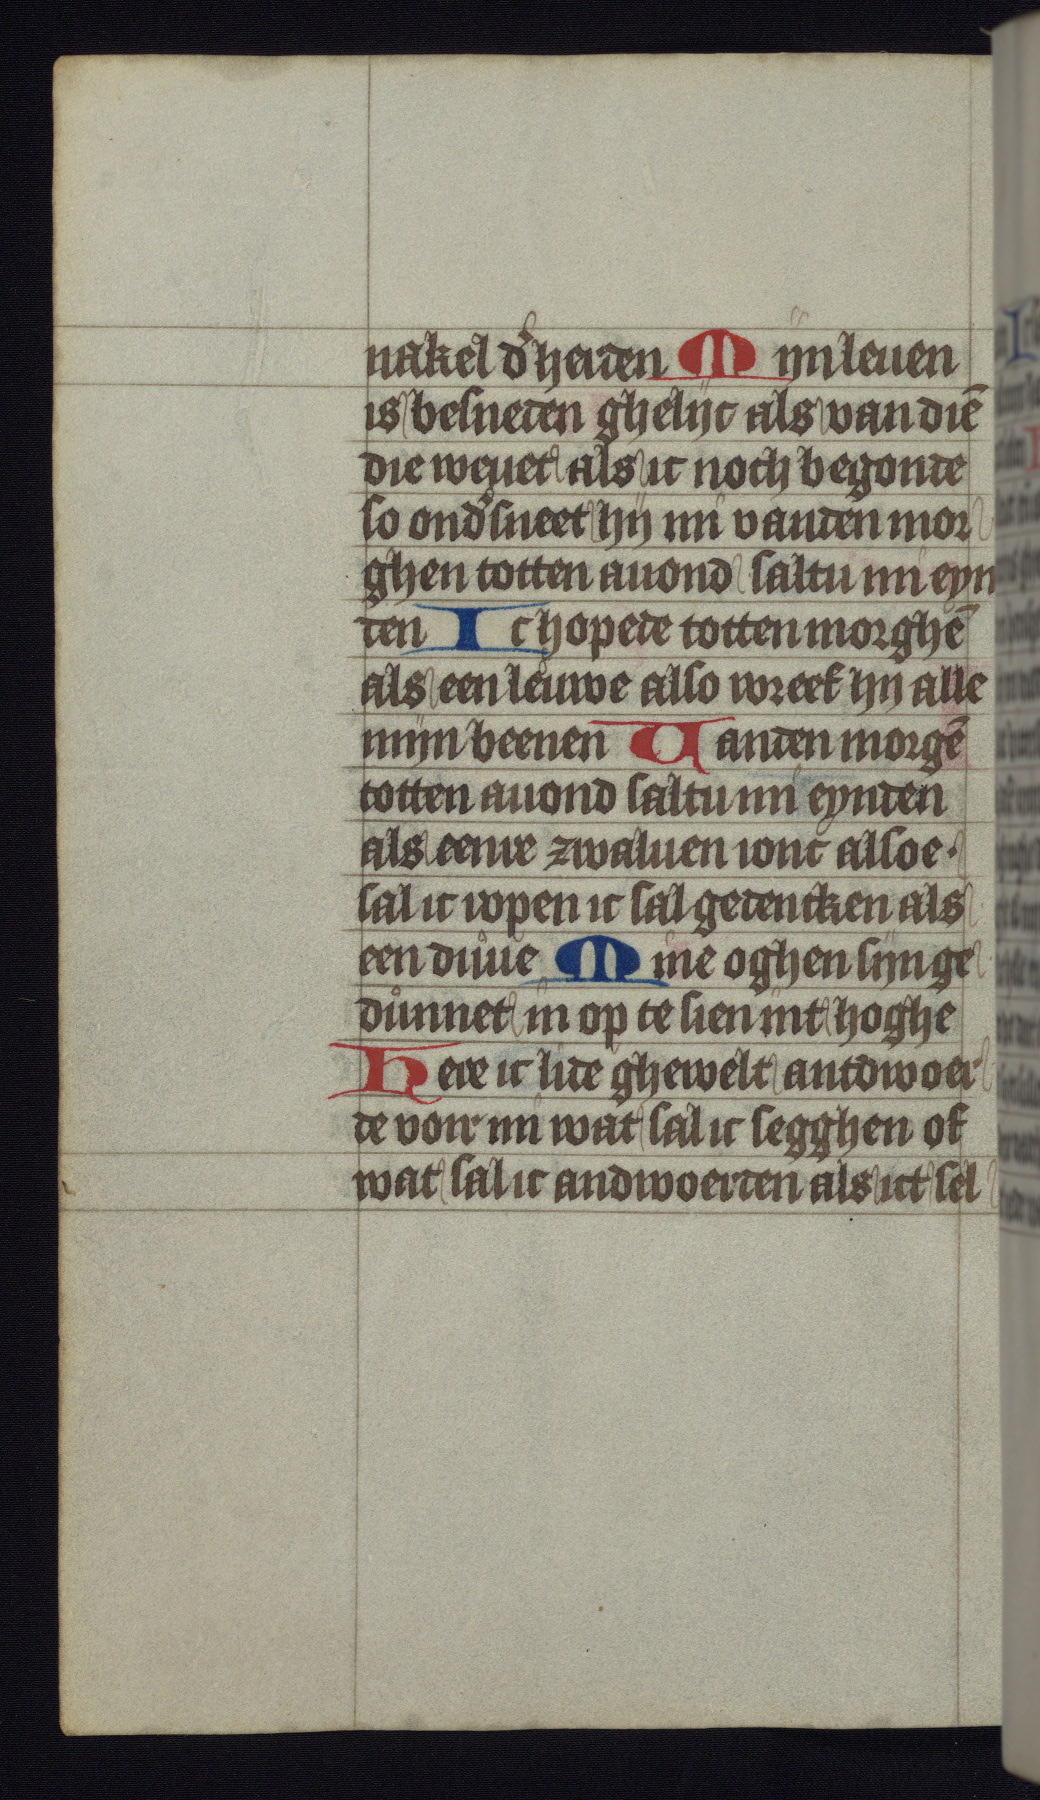 nakel d'heirden Mijn leuen
is besneden ghelijc als van diē
die weuet als ic noch begonde
so ond'sneet hij mi vanden mor
ghen totten auond saltu mi eyn
den Ic hopede totten morghē
als een leuwe also wreef hij alle
mijn beenen Vanden morgē
totten auond saltu mi eynden
als eenre zwaluen ionc alsoe·
sal ic ropen ic sal gedencken als
een duue Mine oghen sijn ge
dunnet in op te sien int hoghe
Here ic lide ghewelt antdwoer
de voir mi wat sal ic segghen of
wat sal ic andwoerden als ict sel